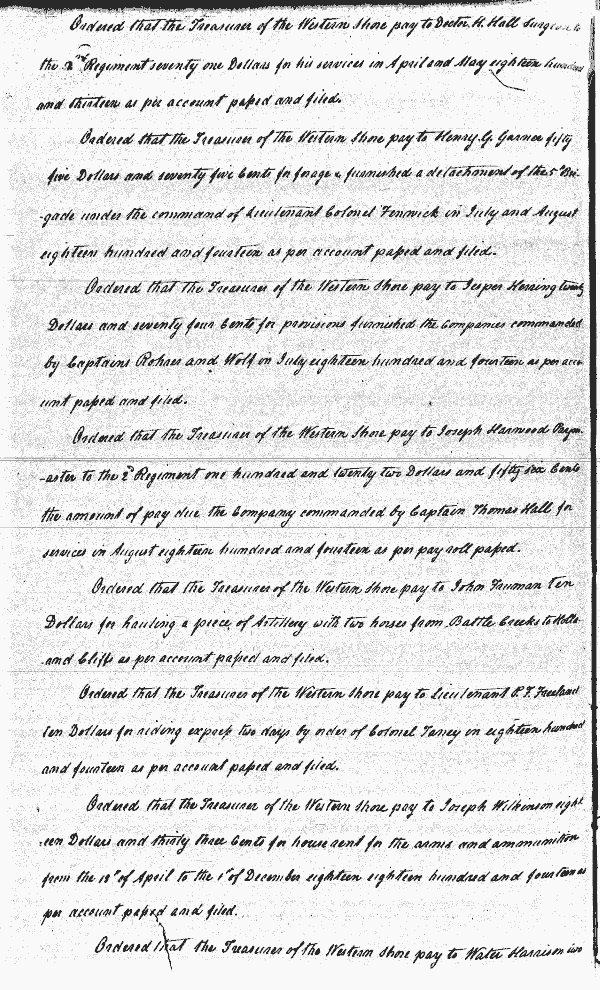 Ordered that the Treasurer of the Western Shore pay to Doctor H. Hall Surgeon to
the 2nd Regiment seventy one Dollars for his services in April and May eighteen hundred
and thirteen as per account paſsed and filed.
Ordered that the Treasurer of the Western Shore pay to Henry G. Garner fifty
five Dollars and seventy five Cents for forage & furnished a detachment of the 5th Bri-
-gade under the command of Lieutenant Colonel Fenwick in July and August
eighteen hundred and fourteen as per account paſsed and filed.
Ordered that the Treasurer of the Western Shore pay to Jesper Herring twenty
Dollars and seventy four Cents for provisions furnished the Companies commanded
by Captains Rohrer and Wolf in July eighteen hundred and fourteen as per acco-
unt paſsed and filed.
Ordered that the Treasurer of the Western Shore pay to Joseph Harwood Paym-
-aster to the 2nd Regiment one hundred and twenty two Dollars and fifty six Cents
the amount of pay due the Company commanded by Captain Thomas Hall for
services in August eighteen hundred and fourteen as per pay roll paſsed.
Ordered that the Treasurer of the Western Shore pay to John Truman ten
Dollars for hauling a piece of Artillery with two horses from Battle Creek to Holl-
-and Cliffs as per account paſsed and filed.
Ordered that the Treasurer of the Western Shore pay to Lieutenant Freeland
ten Dollars for riding expreſs two days by order of Colonel Taney in eighteen hundred
and fourteen as per account paſsed and filed.
Ordered that the Treasurer of the Western Shore pay to Joseph Wilkinson eight-
-een Dollars and thirty three Cents for house rent for the arms and ammunition
from the 18th of April to the 1st of December eighteen eighteen hundred and fourteen as
per account paſsed and filed.
Ordered that the Treasurer of the Western Shore pay to Water Harrison two